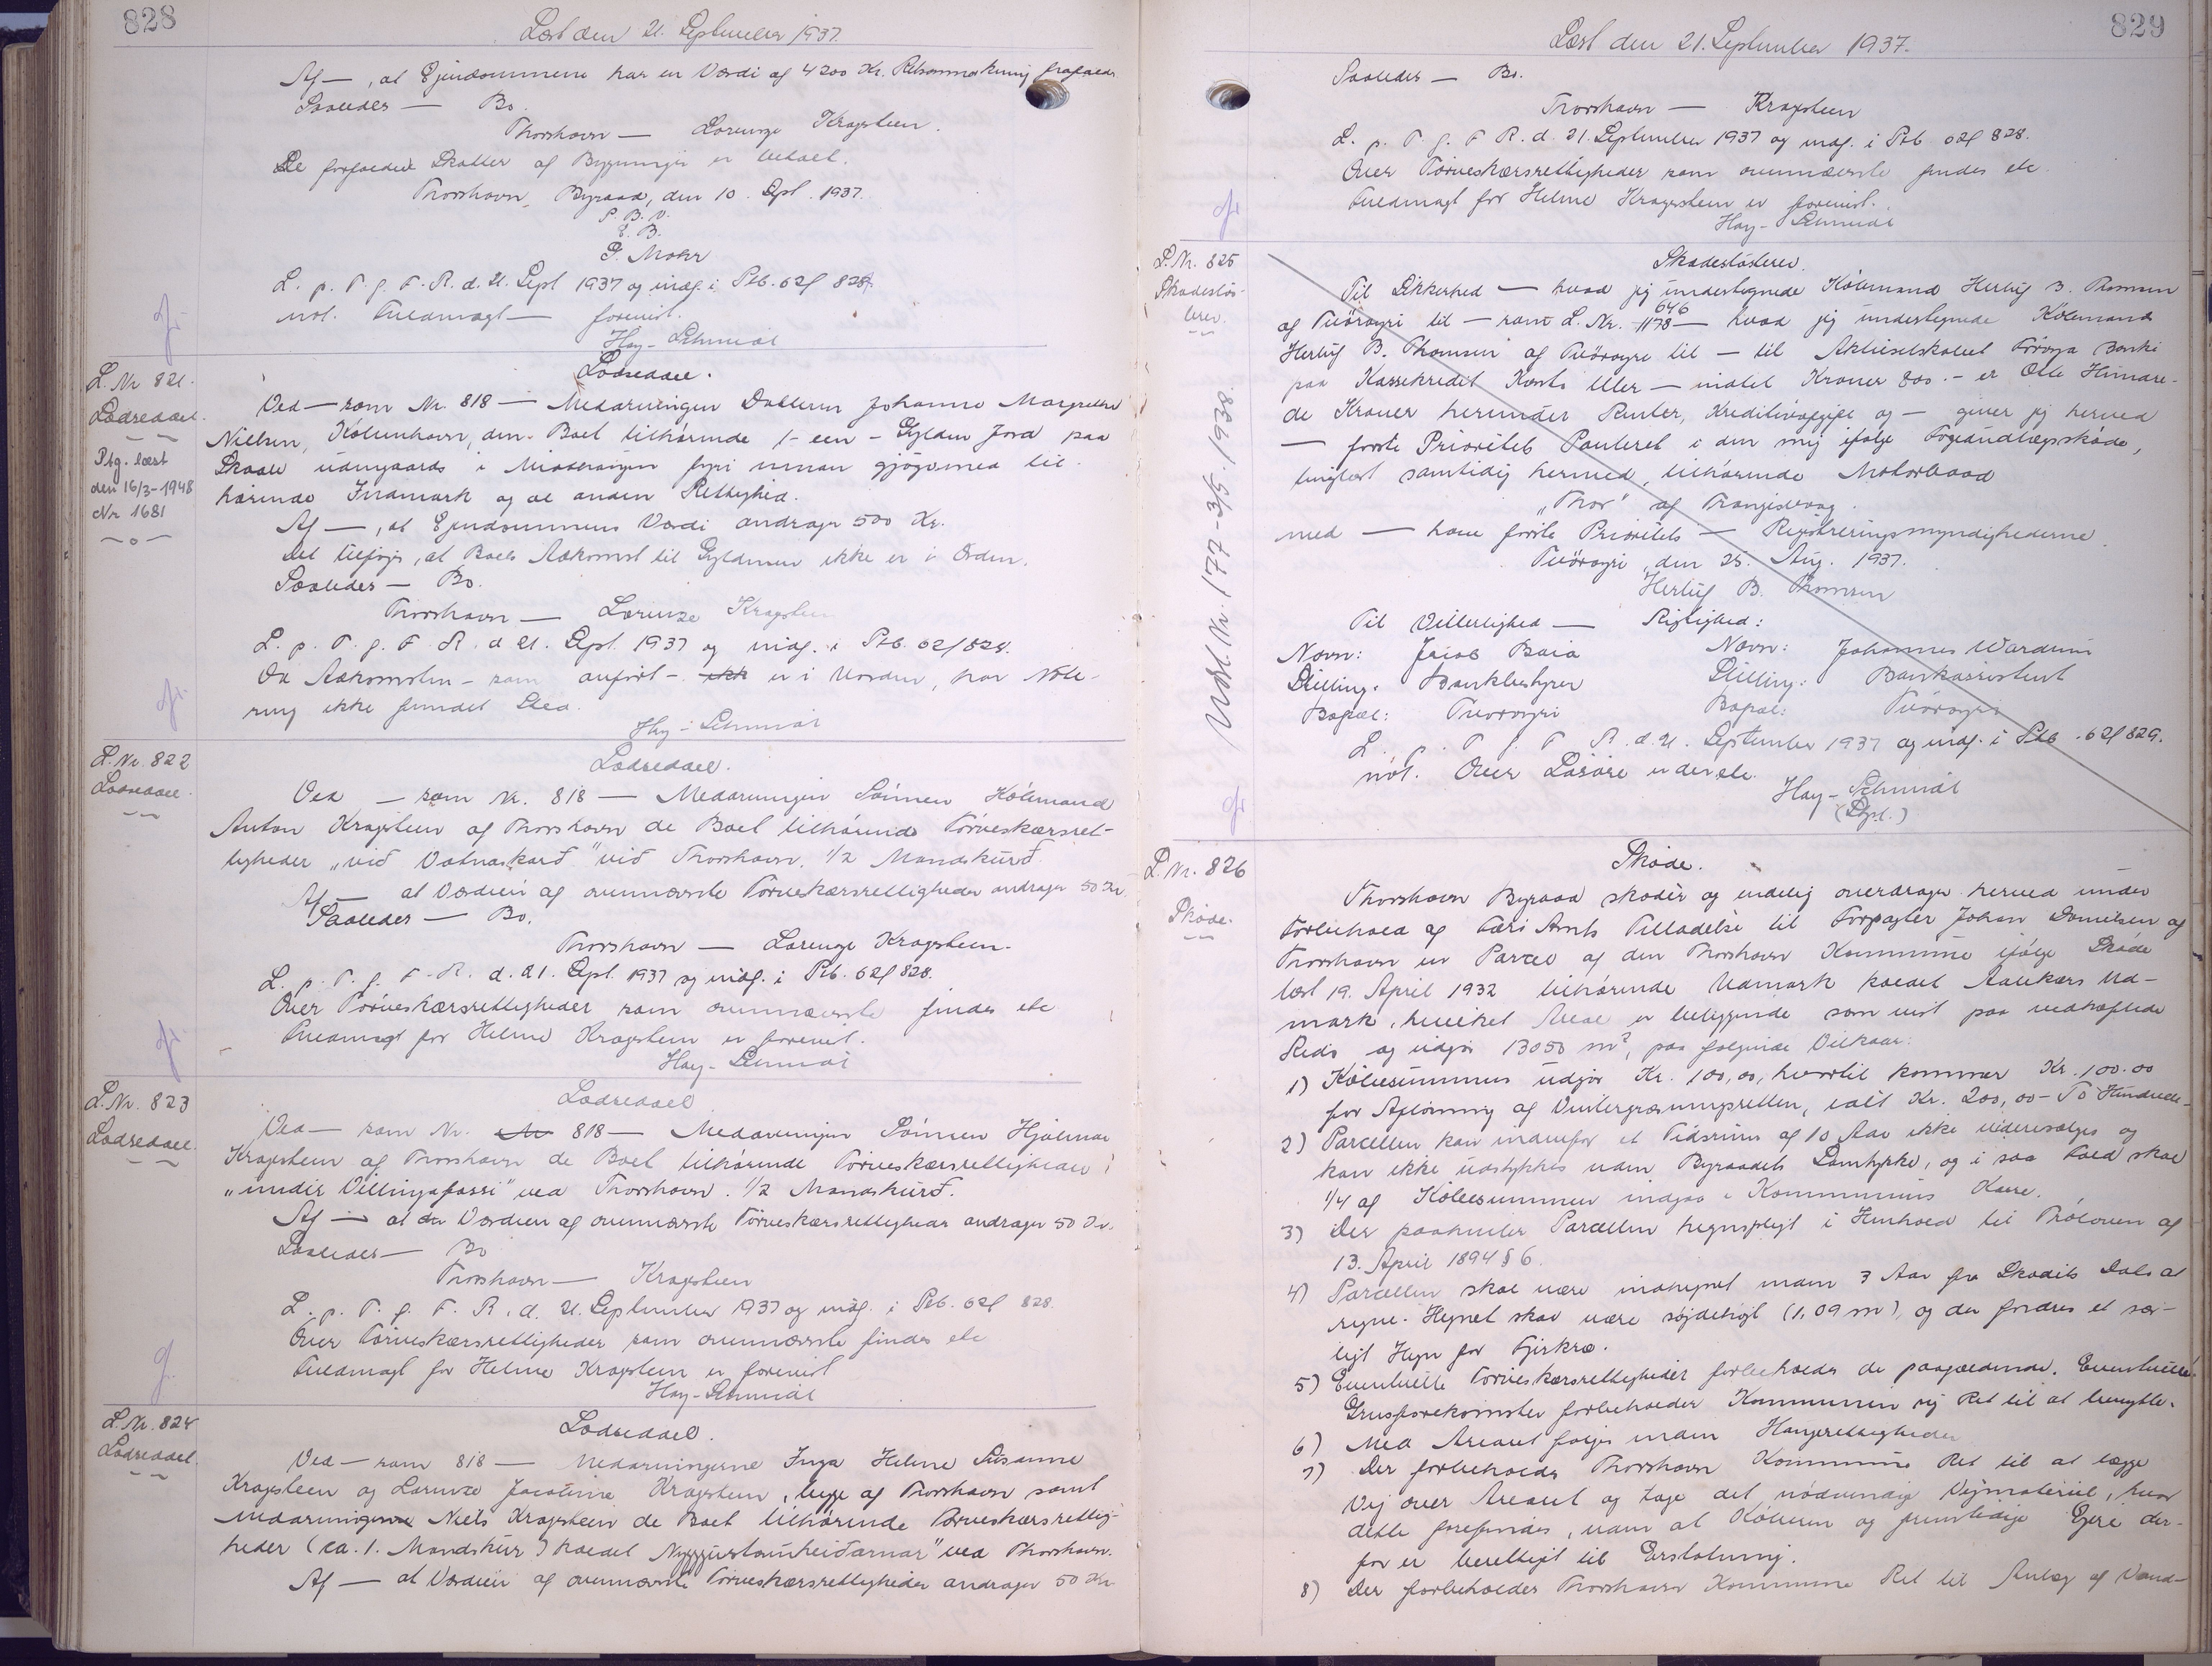 828
Læst den 21. September 1937.
Af — , at Ejendommene har en Værdi af 4200 Kr. Retsanmærkning frafaldes
Saaledes — Bo.
Thorshavn — Lorenze Kragsteen.
De forfaldne Skatter af Bygningen er betalt.
Thorshavn Byraad, den 10. Sept. 1937.
P. B. V.
E. B.
P. Mohr
L. p. T. g. F. R. d. 21. Sept 1937 og indf. i Ptb. 62f 828.
not. Fuldmagt — forevist.
Hay-Schmidt
L. Nr 821.
Lodseddel.
Ptg. læst
den 16/3-1948
Nr 1681
Lodseddel.
Ved — som Nr. 818 — Medarvingen Datteren Johanne Margrethe
Nielsen, København, den Boet tilhørende 1 - een - Gylden Jord paa
Skaale udengaards i Miðteringen fyri innan gjógvmed til-
hørende Indmark og al anden Rettighed.
Af — , at Ejendommens Værdi andrager 500 Kr.
Det tilføjes, at Boets Adkomst til Gyldenen ikke er i Orden.
Saaledes — Bo.
Thorshavn — Lorenze Kragsteen
L. p. T. g. F. R. d 21. Sept. 1937 og indf. i Ptb. 62f 828.
Da Adkomsten - som anført - ikke er i Orden, har Note-
ring ikke fundet Sted.
Hay-Schmidt
L. Nr. 822
Lodseddel.
Lodseddel.
Ved — som Nr. 818 — Medarvingen Sønnen Købmand
Anton Kragsteen af Thorshavn de Boet tilhørende Tørveskærsret-
tigheder "við Vatnaskarð" við Thorshavn. 1/2 Mandskurð.
Af — at Værdien af ovennævnte Tørveskærsrettigheder andrager 50 Kr.
Saaledes — Bo.
Thorshavn — Lorenze Kragsteen.
L. p. T. g. F. R. d. 21. Sept. 1937 og indf. i Ptb. 62f 828.
Over Tørveskærsrettigheder som ovennævnte findes etc
Fuldmagt for Helene Kragsteen er forevist.
Hay-Schmidt
L. Nr. 823
Lodseddel.
Lodseddel
Ved — som Nr. 818 — Medarvingen Sønnen Hjalmar
Kragsteen af Thorshavn de Boet tilhørende Tørveskærsrettigheder i
"undir Villingafossi" ved Thorshavn. 1/2 Mandskurð.
Af — at Værdien af ovennævnte Tørveskærsrettigheder andrager 50 Kr.
Saaledes — Bo
Thorshavn — Kragsteen
L. p. T. g. F. R. d. 21. September 1937 og indf. i Ptb. 62f 828.
Over Tørveskærsrettigheder som ovennævnte findes etc
Fuldmagt for Helene Kragsteen er forevist
Hay-Schmidt
L. Nr. 824
Lodseddel.
Lodseddel.
Ved — som 818 — Medarvingerne Inga Helene Susanne
Kragsteen og Lorenze Jacobine Kragsteen, begge af Thorshavn samt
Medarvingen Niels Kragsteen de Boet tilhørende Tørveskærsrettig-
heder (ca. 1. Mandskur) kaldet ved Thorshavn.
Af — at Værdien af ovennævnte Tørveskærsrettigheder andrager 50 Kr
829
Læst den 21. September 1937.
Saaledes — Bo.
Thorshavn — Kragsteen
L. p. T. g. F. R. d. 21. September 1937 og indf. i Ptb 62f 828.
Over Tørveskærsrettigheder som ovennævnte findes etc
Fuldmagt for Helene Kragsteen er forevist.
Hay-Schmidt
L. Nr. 825
Skadesløs-
brev.
Udsl. Nr. 177 - 3/5. 1938.
Skadesløsbrev.
Til Sikkerhed — hvad jeg undertegnede Købmand Herluf B. Thomsen
af Tvöroyri til — som L. Nr. 1178 646 — hvad jeg undertegnede Købmand
Herluf B. Thomsen af Tvöroyri til — til Aktieselskabet Föroya Banki
paa Kassekredit Konto eller — indtil Kroner 800.- er Otte Hundre-
de Kroner herunder Renter, Kreditivafgift og — giver jeg herved
— første Prioritets Panteret i den mig ifølge Fogedudlægsskøde,
tinglæst samtidig hermed, tilhørende Motorbaad
"Thor" af Trangisvaag.
med — have første Prioritets — Registreringsmyndighederne.
Tvöroyri, den 25. Aug. 1937.
Herluf B. Thomsen
Til Vitterlighed — Rigtighed:
Navn: Jacob Navn: Johannes Wardum
Stilling: Bankbestyrer Stilling: Bankassistent
Bopæl: Tvöroyri Bopæl: Tvöroyri
L. p. T. g. F. R. d. 21. September 1937 og indf. i Ptb. 62f 829.
not. Over Løsøre udenl etc.
Hay-Schmidt
(Dept.)
L. Nr. 826
Skøde.
Skøde.
Thorshavn Byraad skøder og endelig overdrager herved under
Forbehold af Færø Amts Tilladelse til Forpagter Johan Danielsen af
Thorshavn en Parcel af den Thorshavn Kommune ifølge Skøde
læst 19. April 1932 tilhørende Udmark kaldet Aalikers Ud-
mark, hvilket Areal er beliggende som vist paa vedhæftede
Rids og udgør 13050 m², paa følgende Vilkaar:
1) Købesummen udgør Kr. 100,00, hvortil kommer Kr. 100.00
for Afløsning af Vintergræsningsretten, ialt Kr. 200,00 - To Hundrede -
2) Parcellen kan indenfor et Tidsrum af 10 Aar ikke videresælges og
kan ikke udstykkes uden Byraadets Samtykke, og i saa Fald skal
1/4 af Købesummen indgaa i Kommunens Kasse.
3) Der paahviler Parcellen hegnspligt i Henhold til Loven af
13. April 1894 § 6.
4) Parcellen skal være indhegnet inden 3 Aar fra Skødets Dato at
regne. Hegnet skal være (1,09 m), og der fordres et sær-
ligt Hegn for Fjerkræ.
5) Eventuelle Tørveskærsrettigheder forbeholdes de paagældende. Eventuelle
Grusforekomster forbeholder Kommunen sig Ret til at benytte.
6) Med Arealet følger ingen Haugerettigheder
7) Der forbeholdes Thorshavn Kommune Ret til at lægge
Vej over Arealet og tage det nødvendige Vejmateriel, hvor
dette forefindes, uden at Køberen og fremtidige Ejere der-
for er berettiget til Erstatning.
8) Der forbeholdes Thorshavn Kommune Ret til Anlæg af Vand-